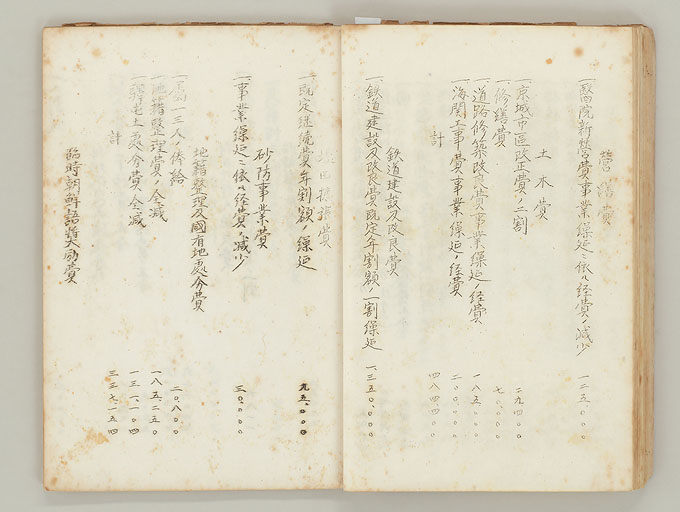 営繕費
一、醫院新營費事業繰延ニ依ル経費ノ減少 一二五〇〇〇
土木費
一、京城市區改正費ノ二割 二九四〇〇
一、修繕費 七〇、〇〇〇
一、道路修築改良費事業繰延ノ経費 一八五〇〇〇
一、海関工事費事業繰延ノ経費 二〇〇、〇〇〇
計 四八四四〇〇
鉄道建設及改良費
一、鉄道建設及改良費既定年割額ノ一割繰延 一、三五〇、〇〇〇
費
一、既定継続費年割額ノ繰延 九五、〇〇〇
砂防事業費
一、事業繰延ニ依ル経費ノ減少 三〇、〇〇〇
地籍整理及國有地處分費
一、属一三人ノ俸給 二〇、八〇〇
一、地籍整理費ノ全減 一八五、二五〇
處分費ノ全減 一三一、一〇四
計 三三七、一五四
臨時朝鮮語奨励費